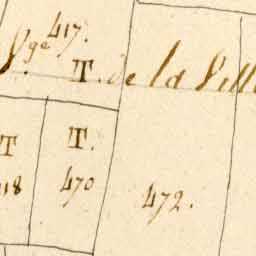 417.
S.ge T. de la Ville
T T.
18 470 472.